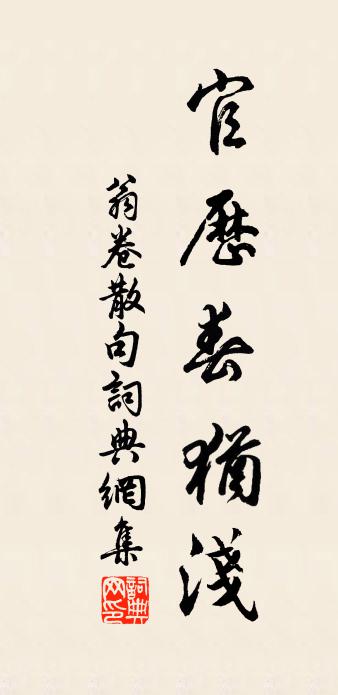 官歷春猶淺
翁卷散句詞典網集
詞典網印